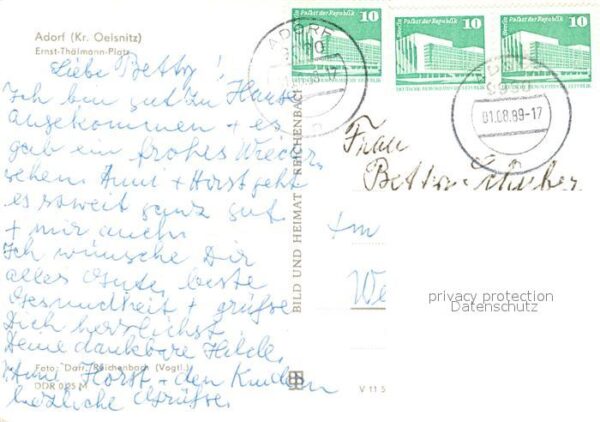 Adorf (Kr. Oelsnitz)
Ernst-Thälmann-Platz
Liebe Betty!
Ich bin gut zu Hause
angekommen + es
gab ein frohes Wieder-
sehen. Anni + Horst geht
es soweit ganz gut
+ mir auch.
Ich wünsche Dir
alles Gute, beste
Gesundheit + grüsse
Dich herzlichst
Deine dankbare Hilde.
Horst + den Kindern
herzliche Grüsse.
Foto: Darr, Reichenbach (Vogtl.)
DDR 0,95 M
BILD UND HEIMAT REICHENBACH
V 11 5
Berlin Palast der Republik 10
DEUTSCHE DEMOKRATISCHE REPUBLIK
Berlin Palast der Republik 10
DEUTSCHE DEMOKRATISCHE REPUBLIK
Berlin Palast der Republik 10
DEUTSCHE DEMOKRATISCHE REPUBLIK
ADORF
9930
ADORF
9930
01.08.89-17
Frau
Betty
We
privacy protection
Datenschutz